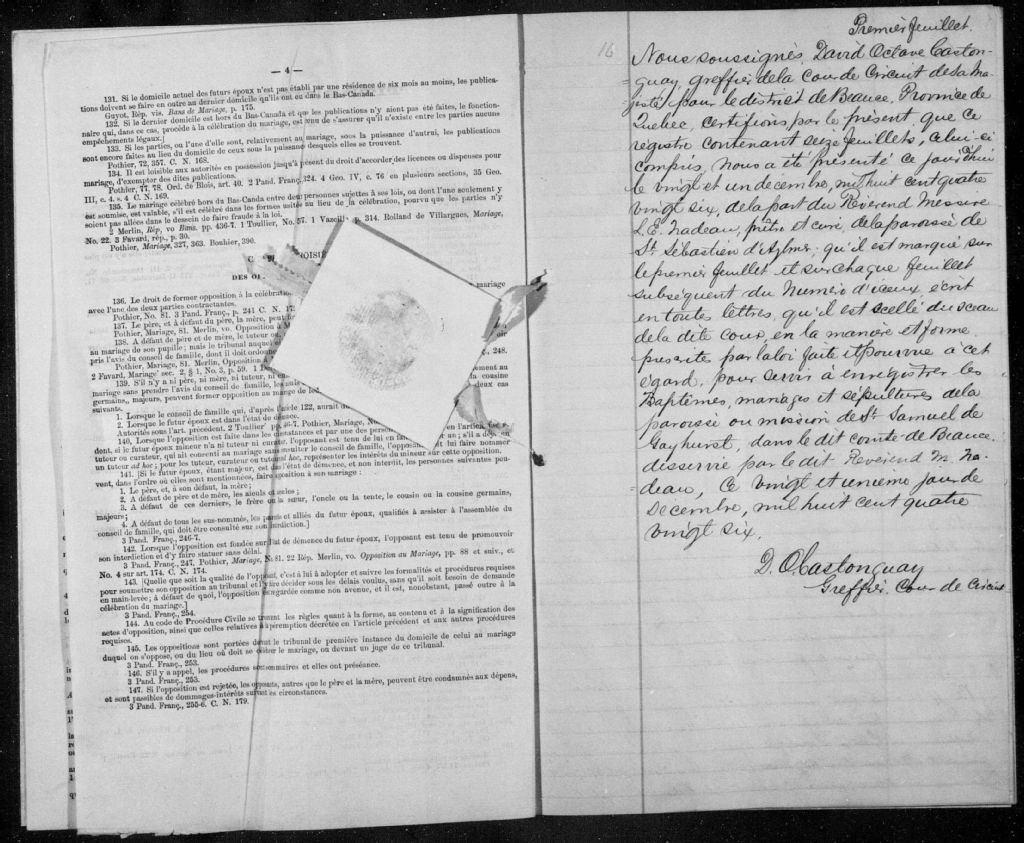 — 4 —
131. Si le domicile actuel des futurs époux n'est pas établi par une résidence de six mois au moins, les publica-
tions doivent se faire en outre au dernier domicile qu'ils ont eu dans le Bas-Canada.
Guyot, Rép. vis. Bans de Mariage, p. 175.
132. Si le dernier domicile est hors du Bas-Canada et que les publications n'y aient pas été faites, le fonction-
naire qui, dans ce cas, procède à la célébration du mariage, est tenu de s'assurer qu'il n'existe entre les parties aucuns
empêchements légaux.]
133. Si les parties, ou l'une d'elle sont, relativement au mariage, sous la puissance d'autrui, les publications
sont encore faites au lieu du domicile de ceux sous la puissance desquels elles se trouvent.
Pothier, 72, 357. C. N. 168.
134. Il est loisible aux autorités en possession jusqu'à présent du droit d'accorder des licences ou dispenses pour
mariage, d'exempter des dites publications.
Pothier, 77, 78. Ord. de Blois, art. 40. 2 Pand. Franç., 324. 4 Geo. IV, c. 76 en plusieurs sections, 35 Geo.
III, c. 4. s. 4 C. N. 169.
135. Le mariage célébré hors du Bas-Canada entre des personnes sujettes à ses lois, ou dont l'une seulement y
est soumise, est valable, s'il est célébré dans les formes usitées au lieu de la célébration, pourvu que les parties n'y
soient pas allées dans le dessein de faire fraude à la loi.
2 Merlin, Rép, vo Bans, pp. 436-7. 1 Toullier, No. 57. 1 Vazeille p. 314. Rolland de Villargues, Mariage,
No. 22. 3 Favard, rép., p. 30.
Pothier, Mariage, 327, 363. Bouhier, 390.
DES O
mariage
136. Le droit de former opposition à la célébration
avec l'une des deux parties contractantes.
Pothier, No. 81. 3 Pand. Franç. p. 241 C. N. 17
137. Le père, et à défaut du père, la mère, peut
Pothier, Mariage, 81. Merlin, vo. Opposition à M
138. A défaut de père et de mère, le tuteur ou
au mariage de son pupille; mais le tribunal auquel
pris l'avis du conseil de famille, dont il doit ordon
248.
Pothier, Mariage, 81. Merlin, Opposition
2 Favard, Mariage sec. 2, § 1, No. 3, p. 59. 1 D
139. S'il n'y a ni père, ni mère, ni tuteur, ni
la cousine
mariage sans prendre l'avis du conseil de famille, les
deux cas
germains, majeurs, peuvent former opposition au mariage de
suivants.
1. Lorsque le conseil de famille qui, d'après l'article 122, aurait dû
2. Lorsque le futur époux est dans l'état de démence.
Autorités sous l'art. précédent. 2 Toullier pp. 46-7. Pothier, Mariage, N
140. Lorsque l'opposition est faite dans les circonstances et par une des pers
dent, si le futur époux mineur n'a ni tuteur ni curateur, l'opposant est tenu de lui en
tuteur ou curateur, qui ait consenti au mariage sans consulter le conseil de famille, l'oppos
un tuteur ad hoc; pour les tuteur, curateur ou tuteur ad hoc, représenter les intérêts du mineur sur cette opposition.
141. [Si le futur époux, étant majeur, est dans l'état de démence, et non interdit, les personnes suivantes peu-
vent, dans l'ordre où elles sont mentionnées, faire opposition à son mariage:
1. Le père, et, à son défaut, la mère;
2. A défaut de père et de mère, les aïeuls et aïeules;
3. A défaut de ces derniers, le frère ou la sœur, l'oncle ou la tante, le cousin ou la cousine germains,
majeurs;
4. A défaut de tous les sus-nommés, les parents et alliés du futur époux, qualifiés à assister à l'assemblée du
conseil de famille, qui doit être consulté sur son interdiction.]
3 Pand. Franç., 246-7.
142. Lorsque l'opposition est fondée sur l'état de démence du futur époux, l'opposant est tenu de promouvoir
son interdiction et d'y faire statuer sans délai.
3 Pand. Franç., 247. Pothier, Mariage, N. 81. 22 Rép. Merlin, vo. Opposition au Mariage, pp. 88 et suiv., et
No. 4 sur art. 174. C. N. 174.
143. [Quelle que soit la qualité de l'opposant, c'est à lui à adopter et suivre les formalités et procédures requises
pour soumettre son opposition au tribunal et l'y faire décider sous les délais voulus, sans qu'il soit besoin de demande
en main-levée; à défaut de quoi, l'opposition est regardée comme non avenue, et il est, nonobstant, passé outre à la
célébration du mariage.]
3 Pand. Franç., 254.
144. Au code de Procédure Civile se trouvent les règles quant à la forme, au contenu et à la signification des
actes d'opposition, ainsi que celles relatives à la péremption décrétée en l'article précédent et aux autres procédures
requises.
145. Les oppositions sont portées devant le tribunal de première instance du domicile de celui au mariage
duquel on s'oppose, ou du lieu où doit se célébrer le mariage, ou devant un juge de ce tribunal.
3 Pand. Franç., 253.
146. S'il y a appel, les procédures sont sommaires et elles ont préséance.
3 Pand. Franç., 253.
147. Si l'opposition est rejetée, les opposants, autres que le père et la mère, peuvent être condamnés aux dépens,
et sont passibles de dommages-intérêts suivant les circonstances.
3 Pand. Franç., 255-6. C. N. 179.
Premier feuillet.
16
Nous soussignés, David Octave Caston-
guay, greffier de la cour de Circuit de Sa Ma-
jesté, pour le district de Beauce, Province de
Quebec, certifions par le présent que ce
régistre contenant seize feuillets, celui-ci
compris, nous a été présenté ce jourd'hui
le vingt et un décembre, mil huit cent quatre
vingt six, de la part du Révérend Messire
L. E. Nadeau, prêtre et curé, de la paroisse de
St. Sébastien d'Aylmer; qu'il est marqué sur
le premier feuillet et sur chaque feuillet
subséquent du Numéro d'iceux écrit
en toutes lettres, qu'il est scellé du sceau
de la dite cour, en la manière et forme
prescrite par la loi faite et pourvue à cet
égard, pour servir à enregistrer les
Baptêmes, mariages et sépultures de la
paroisse ou mission de St Samuel de
Gayhurst, dans le dit comté de Beauce,
disservie par le dit Révérend M. Na-
deau, ce vingt et unième jour de
Décembre, mil huit cent quatre
vingt six.
D. O Castonguay
Greffier. Cour de Circuit